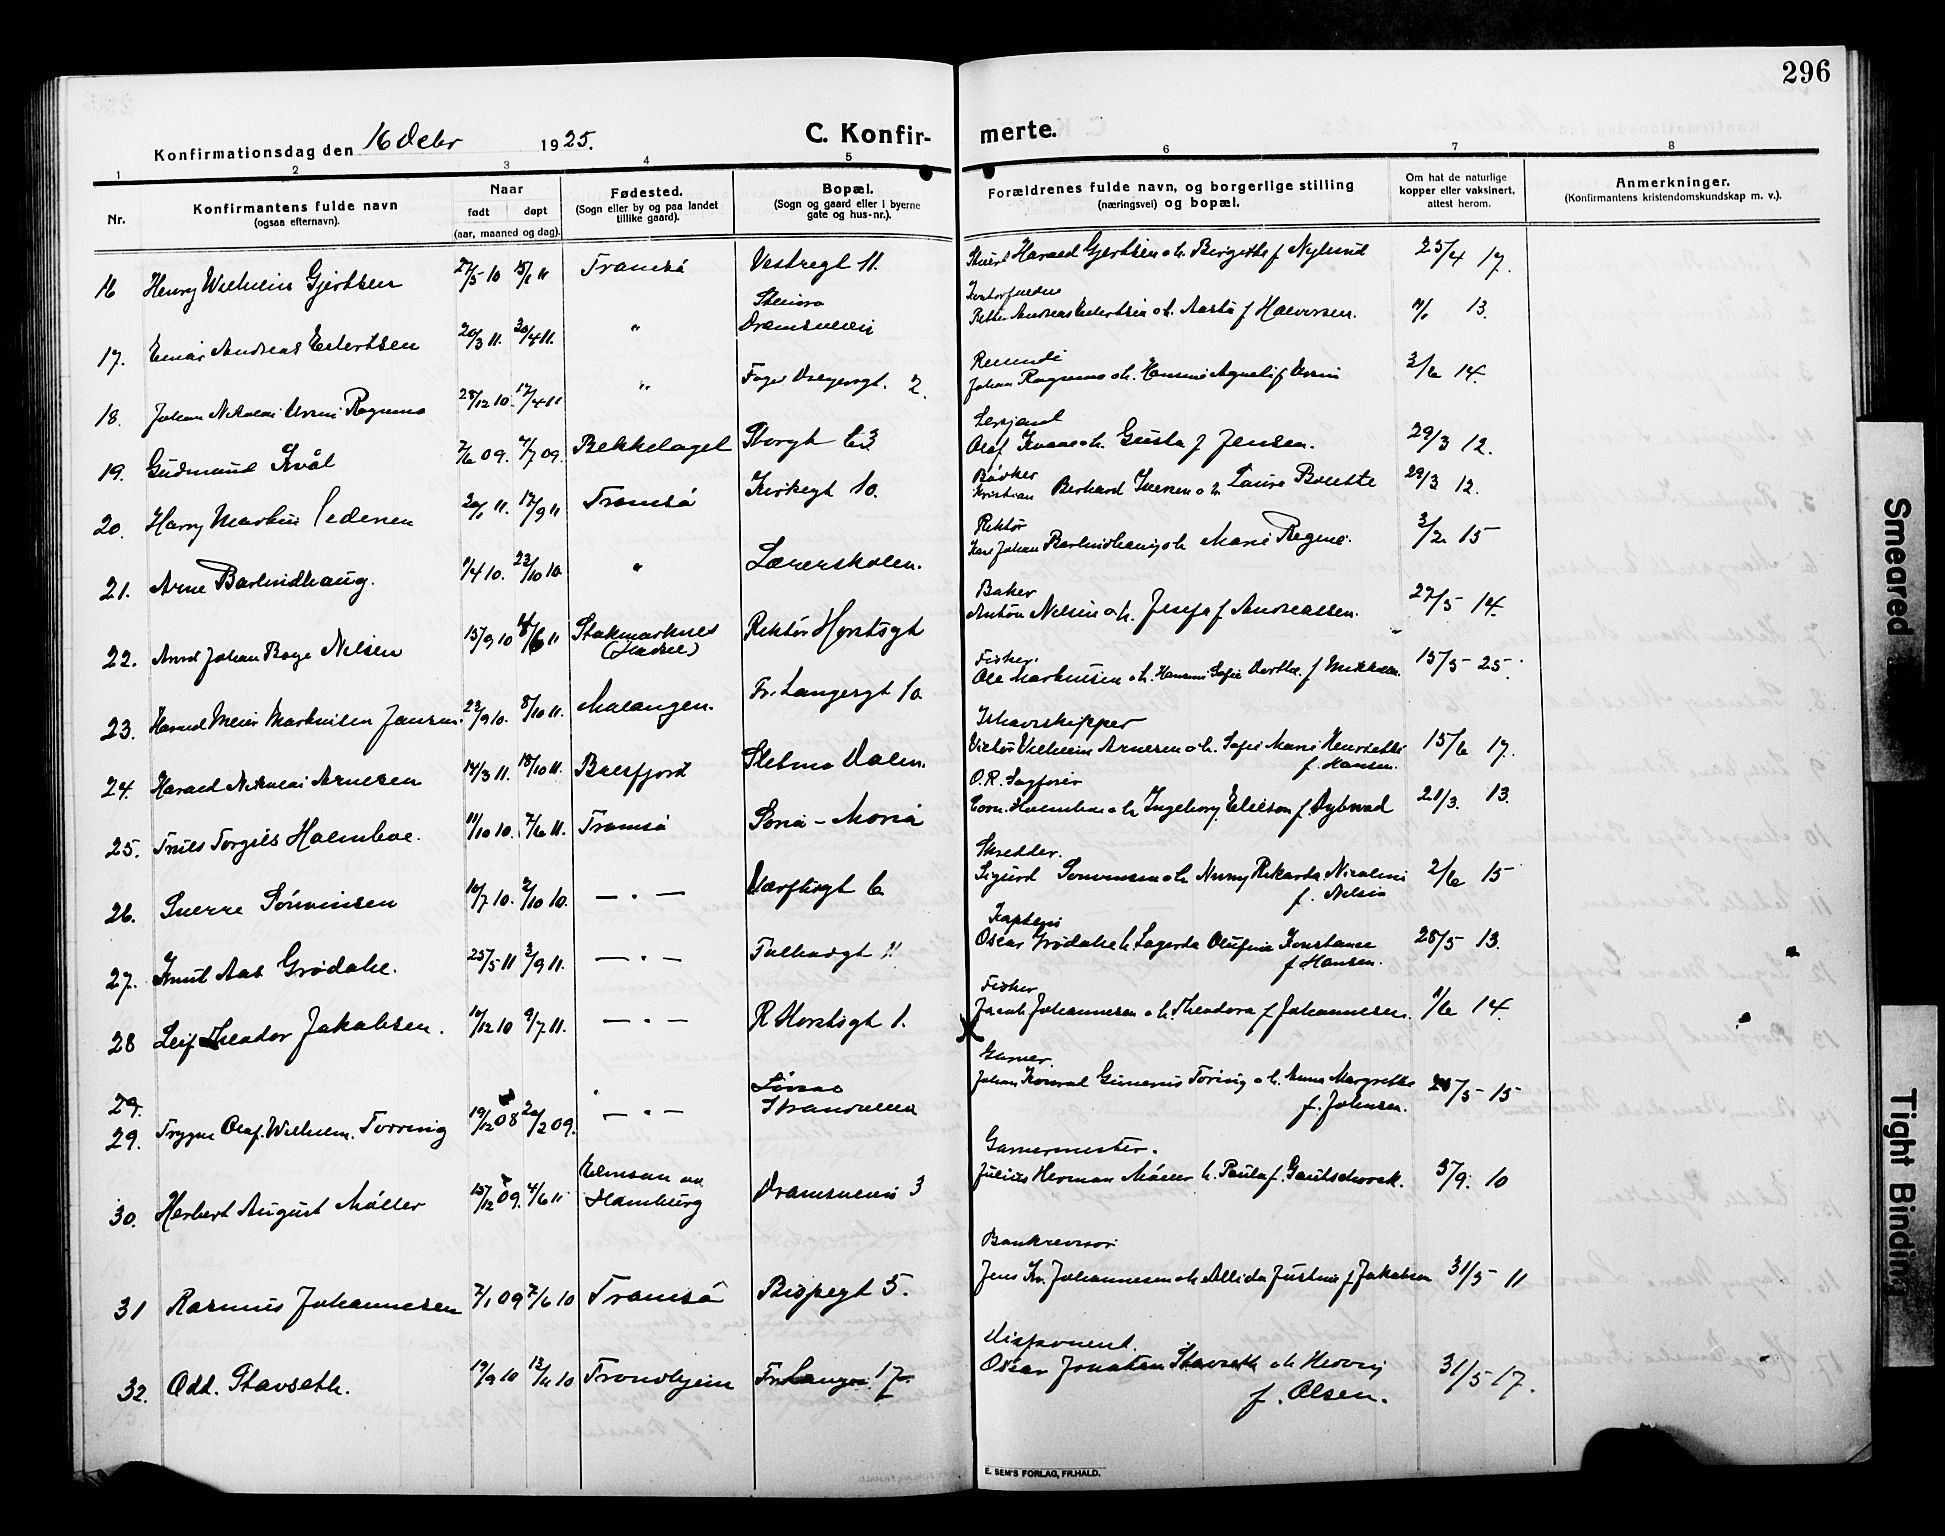 296
Konfirmationsdag den 16 Octbr 1925.
C. Konfir- merte.
1 2 3 4 5 6 7 8
Nr.
Konfirmantens fulde navn
(ogsaa efternavn).
Naar
født døpt
(aar, maaned og dag).
Fødested.
(Sogn eller by og paa landet
tillike gaard).
Bopæl.
(Sogn og gaard eller i byerne
gate og hus-nr.).
Forældrenes fulde navn, og borgerlige stilling
(næringsvei) og bopæl.
Om hat de naturlige
kopper eller vaksinert,
attest herom.
Anmerkninger.
(Konfirmantens kristendomskundskap m. v.).
16 Henry Wilhelm Gjertsen 27/5 10 15/1 11 Tromsö Vestregt 11.
Harald Gjertsen o h. Birgitte f Nylund 25/4 17.
17. Einar Andreas Eilertsen 20/3 11. 30/4 11. "
Petter Andreas Eilertsen o h. Aasta f Halvorsen. 13.
18. Johan Nikolai 28/12 10. 17/4 11 " 2.
Johan 3/6 14.
19. Gudmund Kvål 7/6 09. 4/7 09. Bekkelaget Storgt 63
Sersjant
Olaf o h. Gusta f Jensen. 29/3 12.
20. Harry Markus 20/1 11. 17/9 11 Tromsö Kirkegt 10.
Bødker
Kristian Berhard Iversen o h Laura Bonette 29/3 12.
21. Arne Barlindhaug. 9/4 10. 23/10 10. " Lærerskolen.
Rektor
Karl Johan Barlindhaug o h Marie Regine. 3/2 15
22. Arne Johan Boye Nelsen 15/9 10 18/6 11 Stokmarknes
(Hadsel) Rektor Horstsgt
Baker
Anton Nelsen o h. Josefa f Andreassen. 27/5 14.
23. Harald Meier Markusen Jansen. 22/9 10. 8/10 11. Malangen. Fr. Langesgt 10
Fisker.
Ole Markusen o h. Hansine Sofie Dorthe f Mikkelsen. 15/5 25.
24. Harald Nikolai Arnesen 14/3 11. 15/10 11. Balsfjord Sletmo Dalen.
Ishavskipper
Victor Vilhelm Arnesen o h. Sofie Marie Henriette
f. Hansen. 15/6 17.
25. Truls Torgils Holmboe. 11/10 10. 7/6 11. Tromsö Soria-Moria
O.R. Sagfører
Corn. Holmboe o h Ingeborg Eilerson f. Dybwad 21/3. 13.
26. Sverre Sörensen 10/7 10. 2/10 10. — " — Værftsgt 6
Skredder.
Sigurd Sörensen o h Nunny Rikarda Nicoline
f. Nelsen 2/6 15
27. Knut Aas Grödahl. 25/5 11 3/9 11. — " — 11
Kaptein
Oscar Grödahl o h Lagerda Olufine Konstance
f. Hansen. 28/5 13.
28 Leif Theodor Jakobsen. 10/12 10 9/7 11. — " — R Horstsgt 1.
Fisker
Jacob Johannesen o h. Theodora f Johannesen. 1/6 14.
29.
29. Trygve Olaf Wilhelm. Torring 19/12 08 20/2 09. — " — Strandveien
Garver.
Johan Konrad Gunerius Torring o h. Anna Margrethe
f. Johnsen. 28/5 15
30. Herbert August Möller 15/12 09. 4/6 11 Hamburg Dramsveien 3
Garvermester.
Julius Herman Möller o h. Paula f. 5/9. 10
31 Rasmus Johannesen 7/1 09 7/6 10 Tromsö Bispegt 5.
Bankrevisor
Jens Kr. Johannesen o h Allida Justine f Jakobsen 31/5 11
32. Odd. Stavseth. 19/9 10 13/11 10 Trondhjem Fr. Langes 17
Disponent.
Oscar Jonathan Stavseth o h Herborg
f. Olsen. 31/5 17.
E. SEM'S FORLAG, FR.HALD.
Smeared
Tight Binding